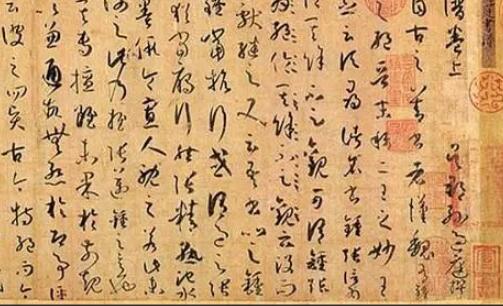 譜卷上 吳郡孫過庭撰
自古之善書者漢魏有鍾
之絕晉末稱二王之妙王
之云頃尋諸名書鍾張信
其餘不足觀可謂鍾張
絕倫其餘不足觀云沒而
獻繼之又云吾書比之鍾
鍾當抗行或謂過之張
猶當雁行然張精熟池水
墨假令寡人耽之若此
之此乃推張邁鍾之意
專擅雖未果於前規
以兼通故無慚於即事評
云彼之四賢古今特絕而今